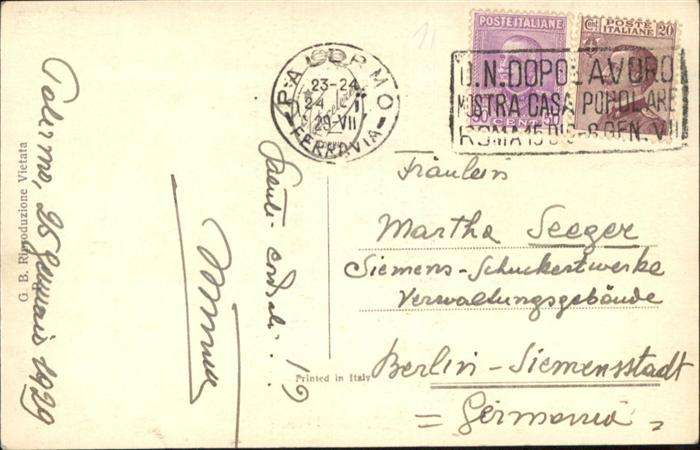 POSTE ITALIANE
POSTE ITALIANE
Cent. 20
50 CENT 50
PALERMO
23-24
24 I
29-VII
FERROVIA
O.N.DOPOLAVORO
MOSTRA CASA POPOLARE
ROMA 15 DIC-6 GEN. VII
Fräulein
Martha Seeger
Siemens-Schuckertwerke
Verwaltungsgebäude
Berlin-Siemensstadt
= Germania =
Palermo, 25 gennaio 1929
G. B. Riproduzione Vietata
Saluti cordiali..!
Printed in Italy